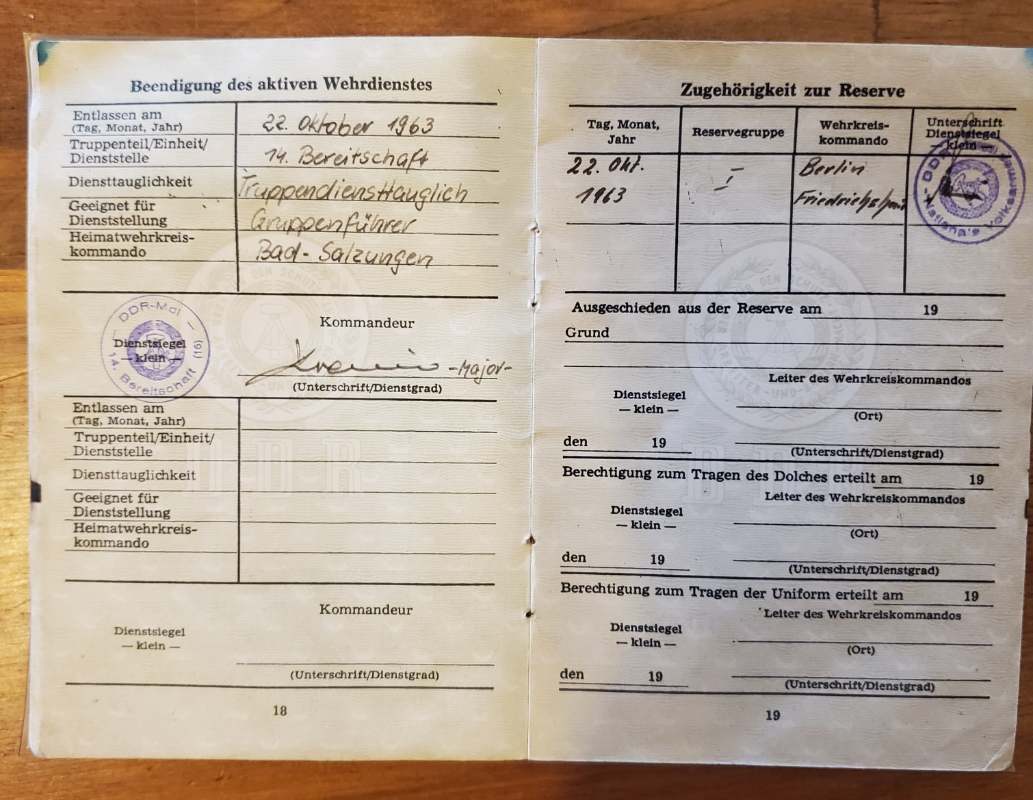 Beendigung des aktiven Wehrdienstes
Entlassen am
(Tag, Monat, Jahr)
22. Oktober 1963
Truppenteil/Einheit/
Dienststelle
14. Bereitschaft
Diensttauglichkeit
Truppendiensttauglich
Geeignet für
Dienststellung
Gruppenführer
Heimatwehrkreis-
kommando
Bad-Salzungen
Kommandeur
DDR-MdI
14. Bereitschaft (16)
Dienstsiegel
— klein —
-Major-
(Unterschrift/Dienstgrad)
Entlassen am
(Tag, Monat, Jahr)
Truppenteil/Einheit/
Dienststelle
Diensttauglichkeit
Geeignet für
Dienststellung
Heimatwehrkreis-
kommando
Kommandeur
Dienstsiegel
— klein —
(Unterschrift/Dienstgrad)
18
Zugehörigkeit zur Reserve
Tag, Monat,
Jahr
Reservegruppe
Wehrkreis-
kommando
Unterschrift
Dienstsiegel
— klein —
22. Okt.
1963
I
Berlin
DDR
Nationale Volksarmee
Ausgeschieden aus der Reserve am 19
Grund
Leiter des Wehrkreiskommandos
Dienstsiegel
— klein —
(Ort)
den 19
(Unterschrift/Dienstgrad)
Berechtigung zum Tragen des Dolches erteilt am 19
Leiter des Wehrkreiskommandos
Dienstsiegel
— klein —
(Ort)
den 19
(Unterschrift/Dienstgrad)
Berechtigung zum Tragen der Uniform erteilt am 19
Leiter des Wehrkreiskommandos
Dienstsiegel
— klein —
(Ort)
den 19
(Unterschrift/Dienstgrad)
19